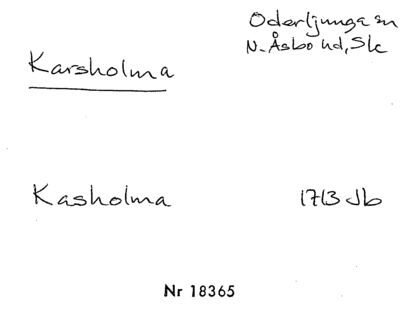 Oderljunga sn
N. Åsbo hd, Sk
Karsholma
Kasholma 1713 Jb
Nr 18365